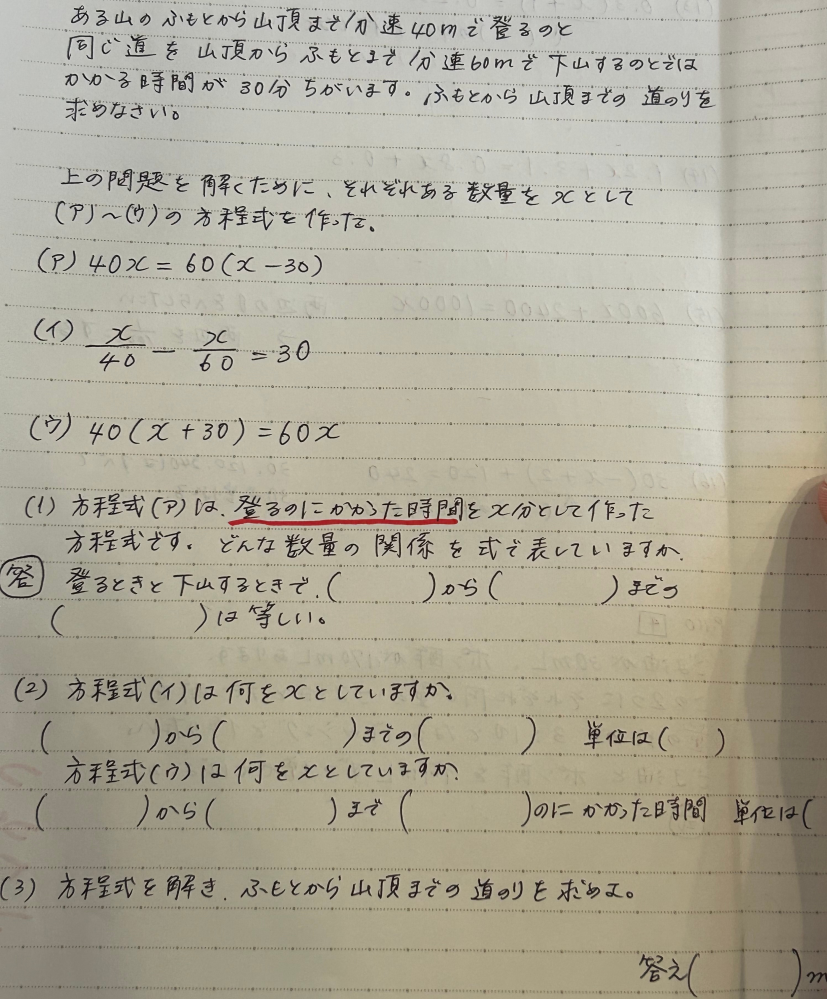 ある山のふもとから山頂まで分速40mで登るのと
同じ道を山頂からふもとまで分速60mで下山するのとでは
かかる時間が30分ちがいます。ふもとから山頂までの道のりを
求めなさい。
上の問題を解くために、それぞれある数量をxとして
(ア)~(ウ)の方程式を作った。
(ア) 40x = 60(x-30)
(イ) x/40 - x/60 = 30
(ウ) 40(x+30) = 60x
(1) 方程式(ア)は、登るのにかかった時間をx分として作った
方程式です。どんな数量の関係を式で表していますか。
答 登るときと下山するときで、( )から( )までの
( )は等しい。
(2) 方程式(イ)は何をxとしていますか。
( )から( )までの( ) 単位は( )
方程式(ウ)は何をxとしていますか。
( )から( )まで( )のにかかった時間 単位は(
(3) 方程式を解き、ふもとから山頂までの道のりを求めよ。
答え( )m